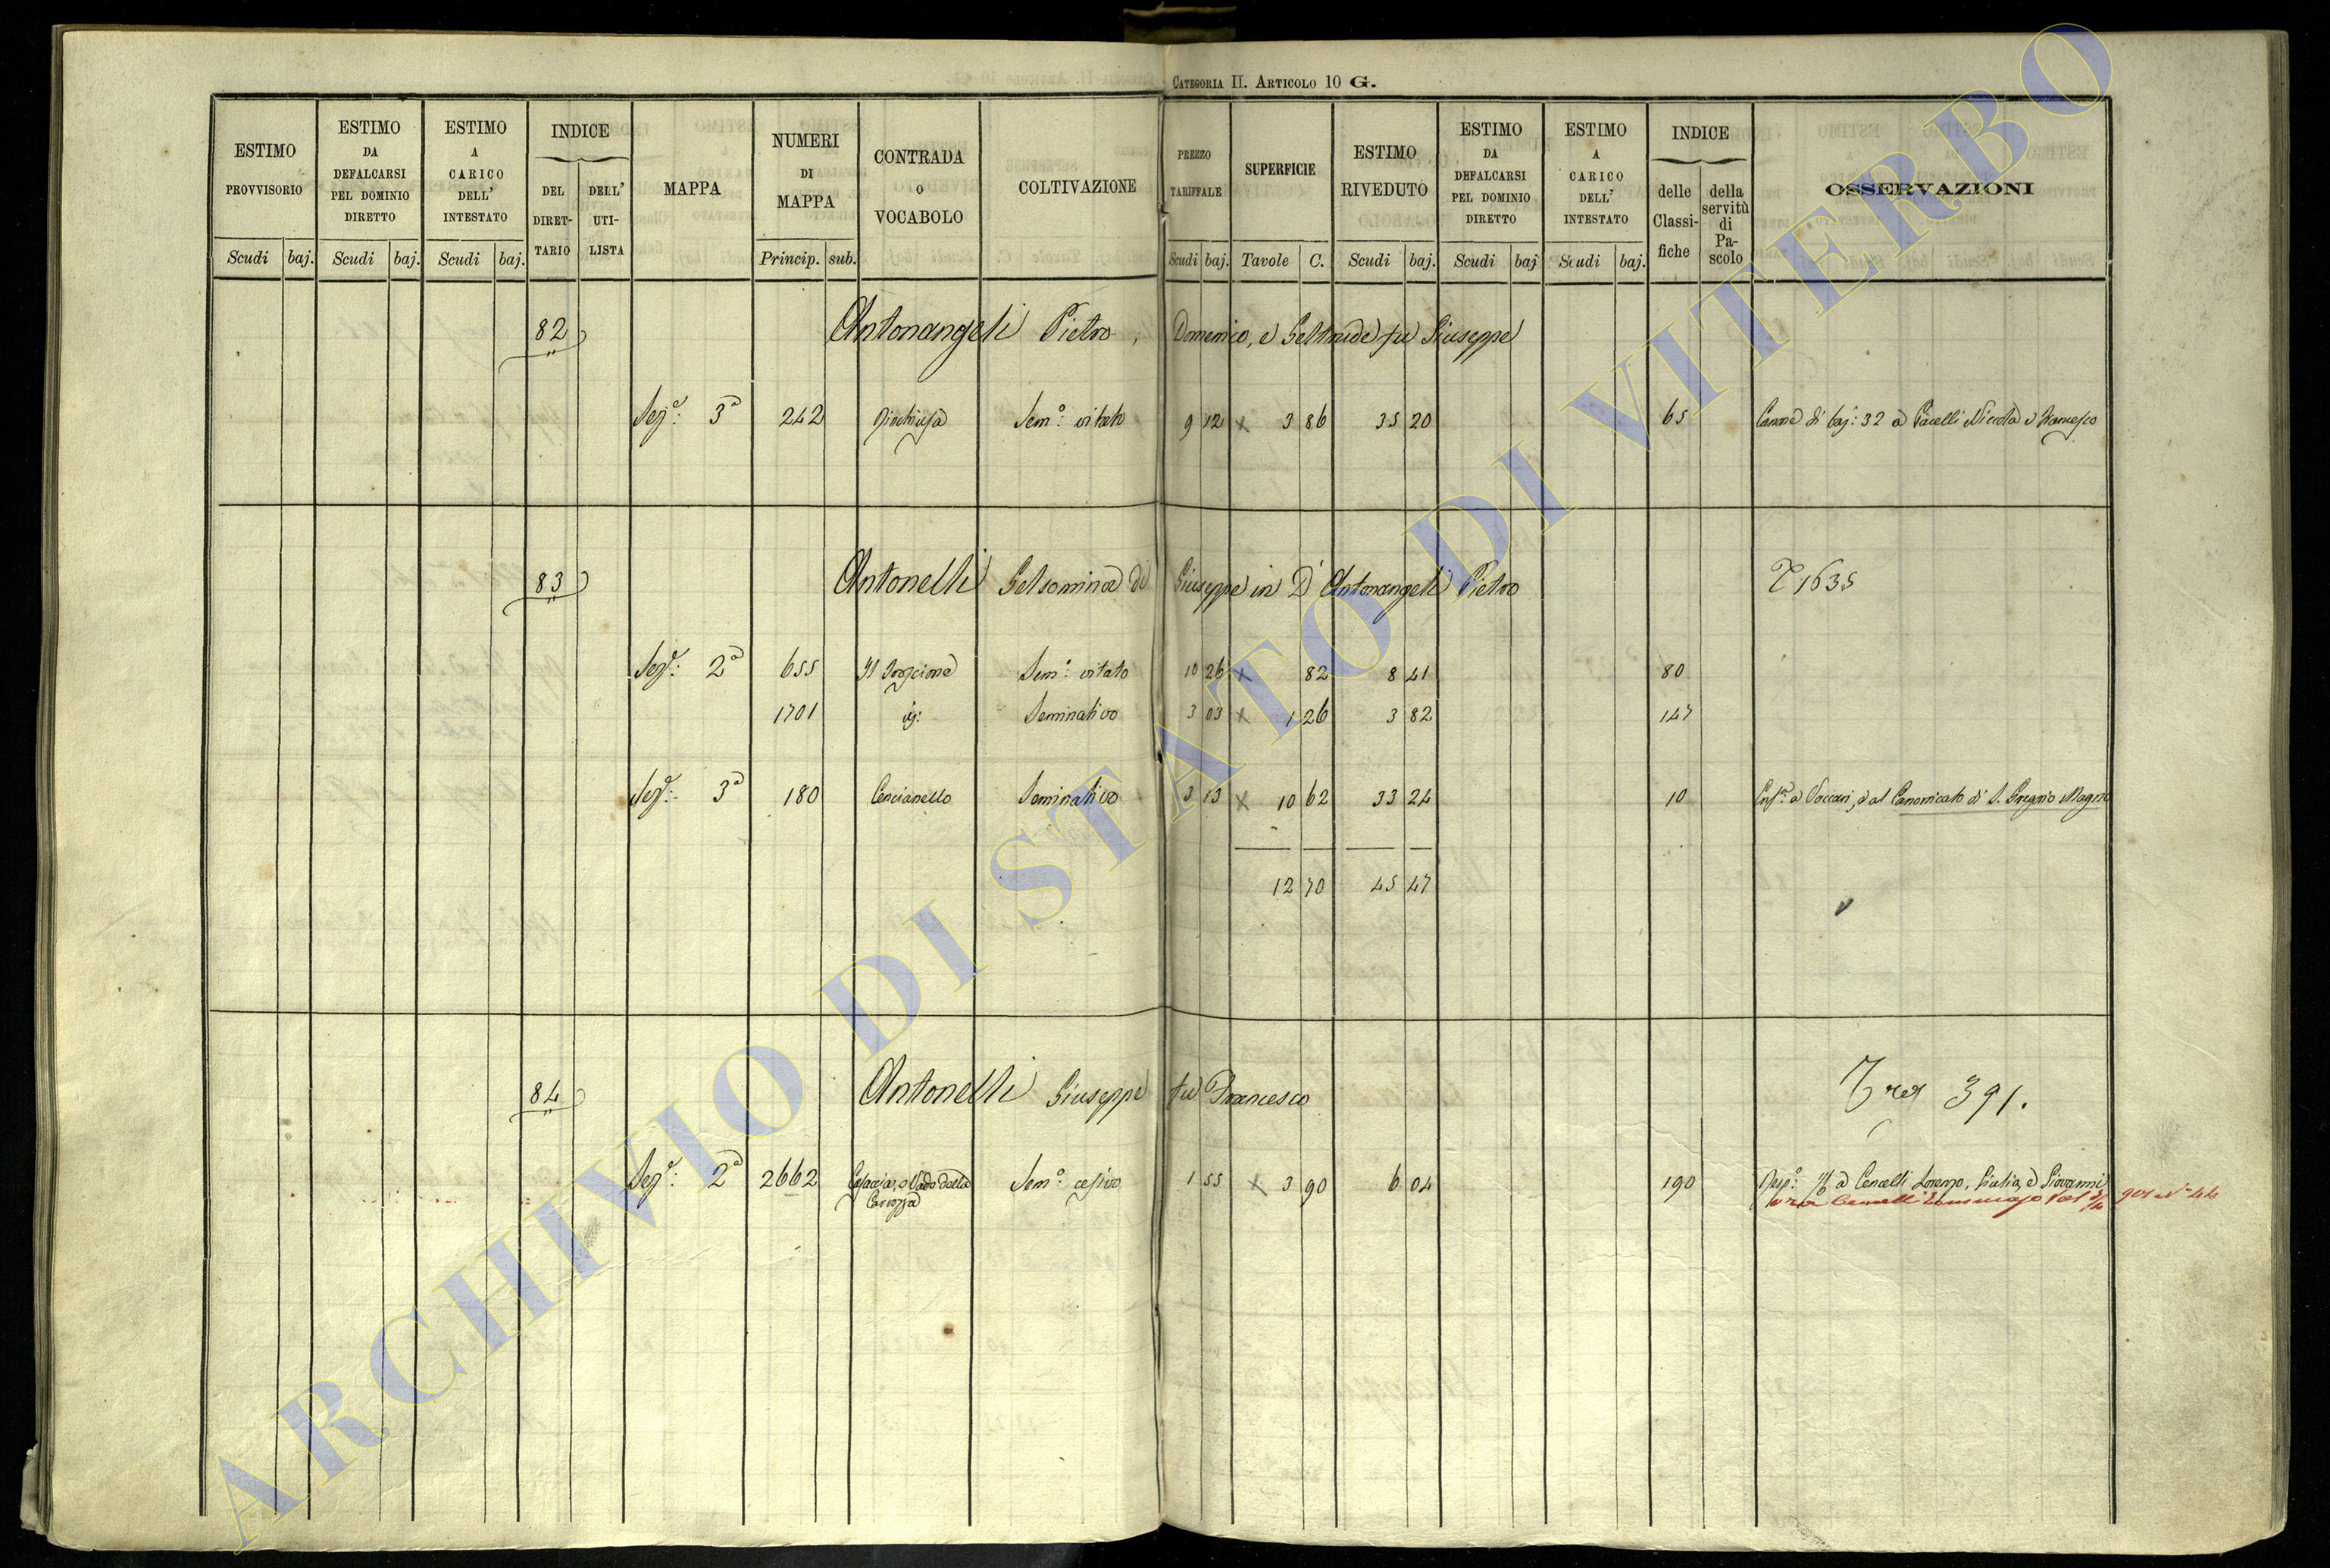 CATEGORIA II. ARTICOLO 10 G.
ESTIMO PROVVISORIO
Scudi baj.
ESTIMO DA DEFALCARSI PEL DOMINIO DIRETTO
Scudi baj.
ESTIMO A CARICO DELL' INTESTATO
Scudi baj.
INDICE
DEL DIRET-TARIO
DELL' UTI-LISTA
MAPPA
NUMERI DI MAPPA
Princip. sub.
CONTRADA O VOCABOLO
COLTIVAZIONE
PREZZO TARIFFALE
Scudi baj.
SUPERFICIE
Tavole C.
ESTIMO RIVEDUTO
Scudi baj.
ESTIMO DA DEFALCARSI PEL DOMINIO DIRETTO
Scudi baj
ESTIMO A CARICO DELL' INTESTATO
Scudi baj.
INDICE
delle Classi-fiche
della servitù di Pa-scolo
OSSERVAZIONI
82 Antonangeli Pietro, Domenico, e Geltrude fu Giuseppe
Sez.e: 3a 242 Sem.o: vitato 9 12 x 3 86 35 20 65 Canone di baj: 32 a Pacelli Nicola e Francesco
83 Antonelli Gelsomina di Giuseppe in D'Antonangeli Pietro T 1635
Sez.e: 2a 655 Sem.o: vitato 10 26 x 82 8 41 80
1701 Seminativo 3 03 x 1 26 3 82 147
Sez.e: 3a 180 Cencianello Seminativo 3 13 x 10 62 33 24 10 a Vaccari, e al Canonicato di S. Gregorio Magno
12 70 45 47
84 Antonelli Giuseppe fu Francesco 391.
Sez.e: 2a 2662 o Vado della Sem.o: 1 55 x 3 90 6 04 190 a Cencelli Lorenzo, Giulio, e Giovanni
ARCHIVIO DI STATO DI VITERBO